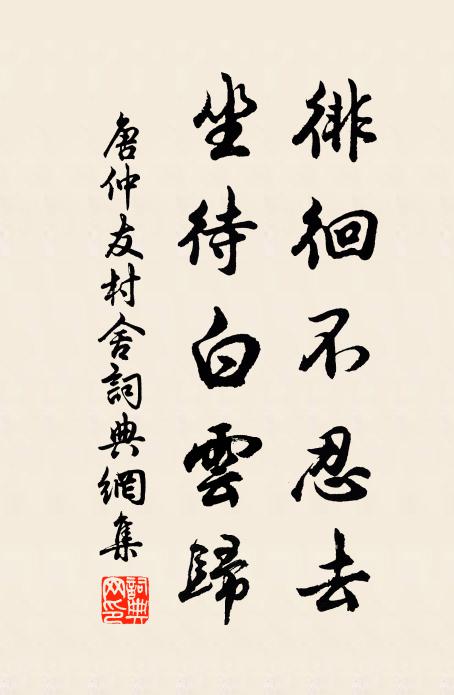 徘徊不忍去
坐待白雲歸
唐仲友村舍詞典網集
詞典网印